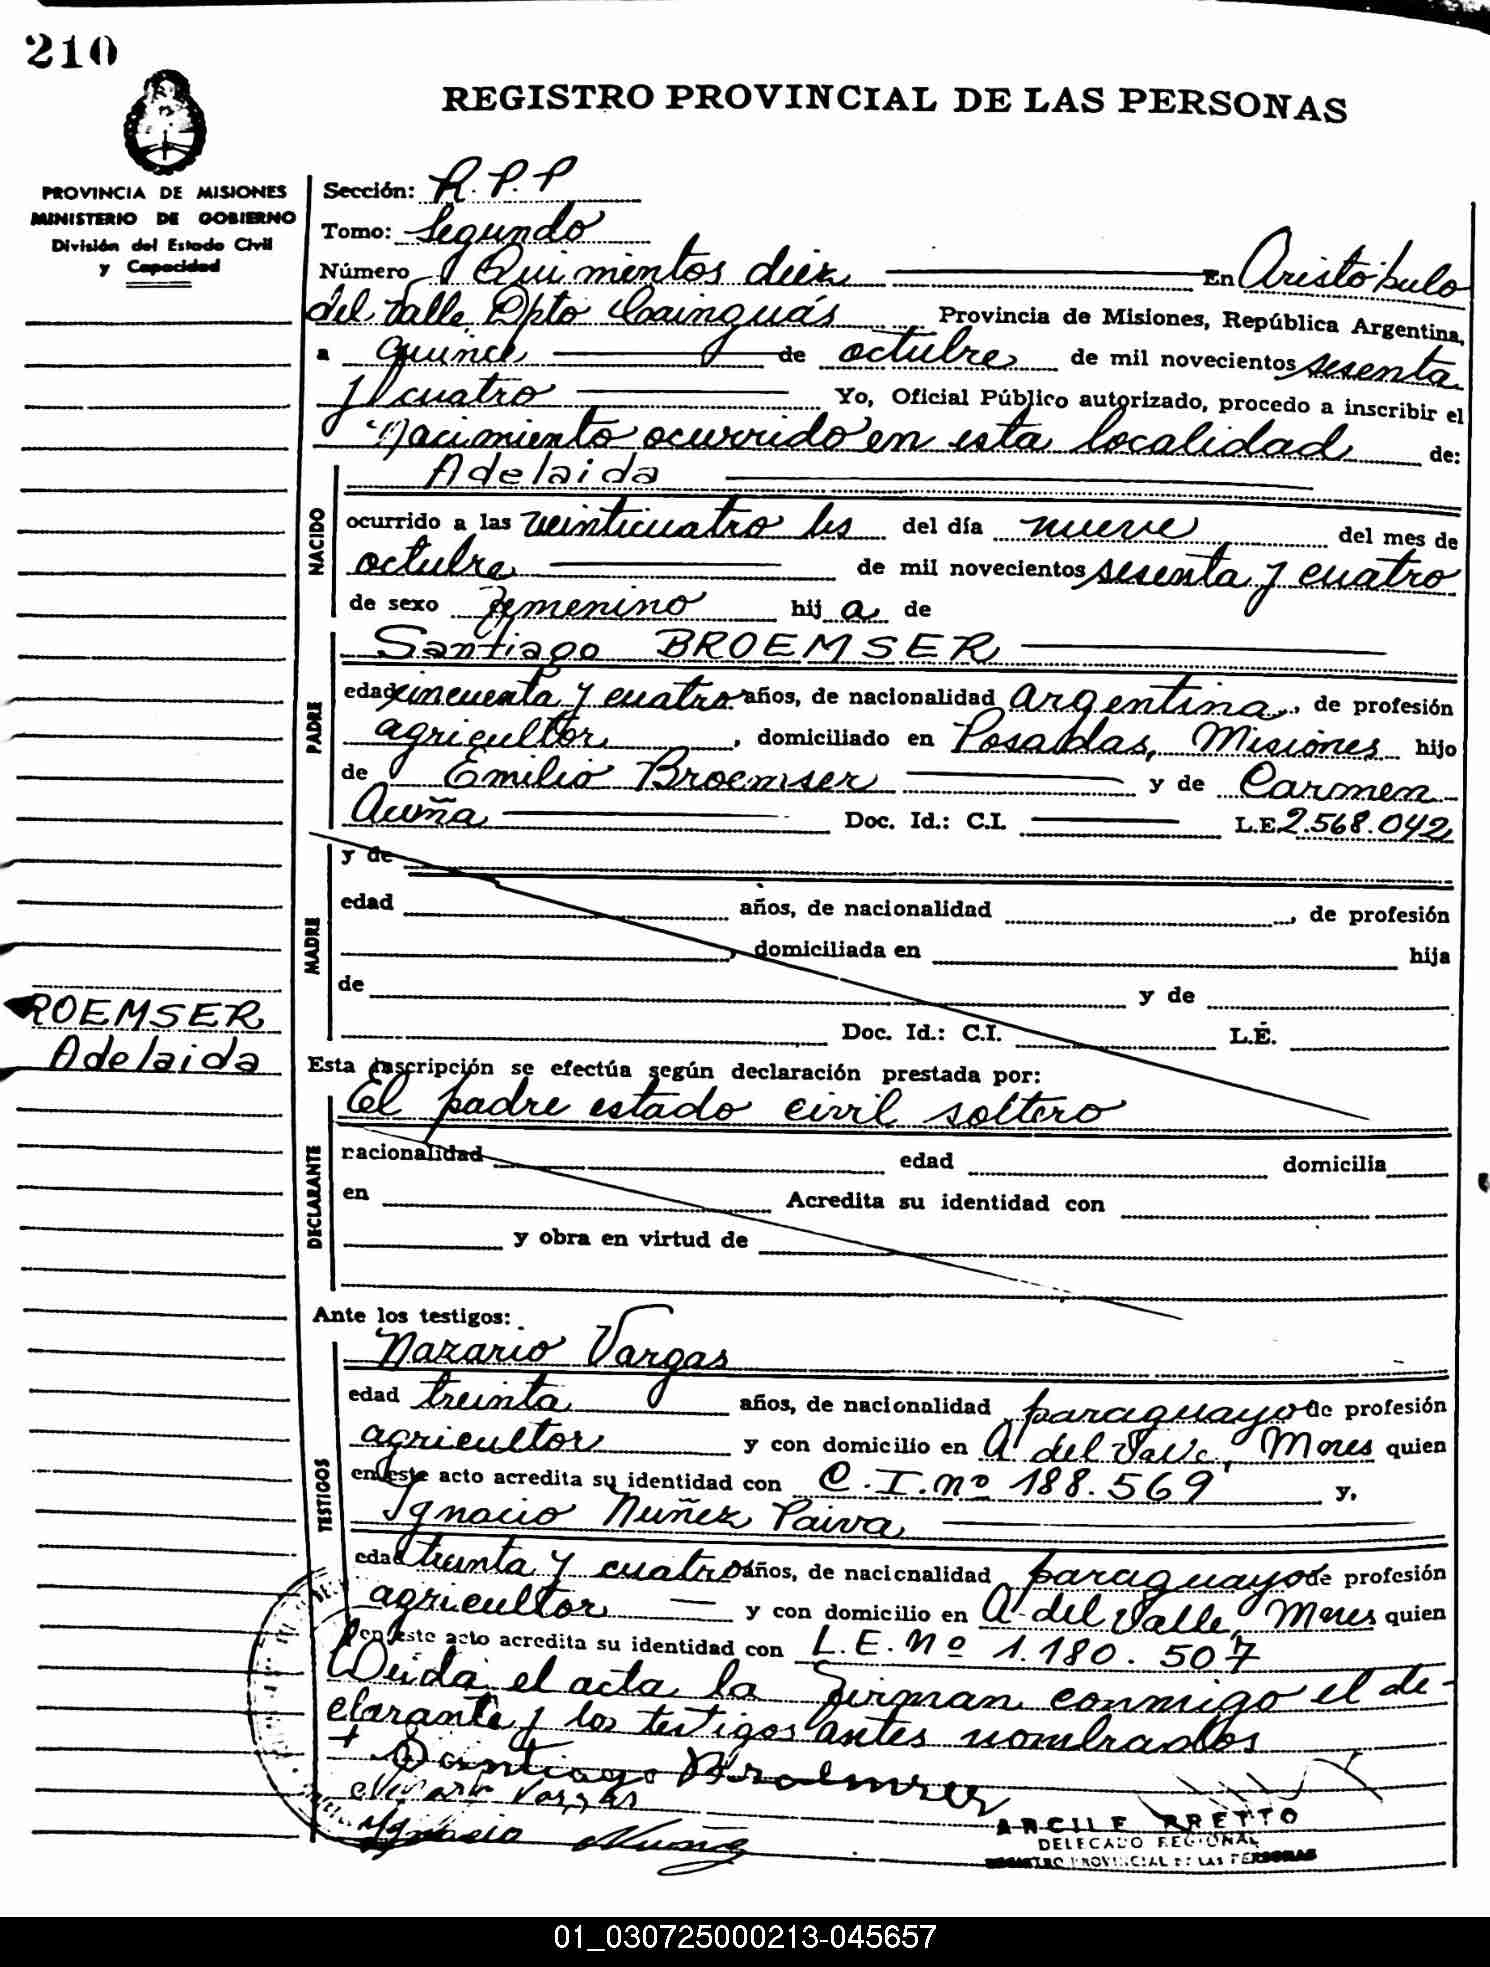 210
REGISTRO PROVINCIAL DE LAS PERSONAS
PROVINCIA DE MISIONES
MINISTERIO DE GOBIERNO
División del Estado Civil
y Capacidad
Sección: R.P.P
Tomo: Segundo
Número Quimentos diez En Aristóbulo
del Valle Dpto Cainguás Provincia de Misiones, República Argentina,
a quince de octubre de mil novecientos sesenta
y cuatro Yo, Oficial Público autorizado, procedo a inscribir el
Nacimiento ocurrido en esta localidad de:
NACIDO
Adelaida
ocurrido a las veinticuatro hs del día nueve del mes de
octubre de mil novecientos sesenta y cuatro
de sexo femenino hij a de
PADRE
Santiago BROEMSER
edad cincuenta y cuatro años, de nacionalidad argentina, de profesión
agricultor, domiciliado en Posadas, Misiones hijo
de Emilio Broemser y de Carmen
Acuña Doc. Id.: C.I. L.E. 2.568.042
MADRE
y de
edad años, de nacionalidad , de profesión
, domiciliada en hija
de y de
Doc. Id.: C.I. L.E.
ROEMSER
Adelaida
Esta inscripción se efectúa según declaración prestada por:
El padre estado civil soltero
DECLARANTE
nacionalidad edad domicilia
en Acredita su identidad con
y obra en virtud de
Ante los testigos:
TESTIGOS
Nazario Vargas
edad treinta años, de nacionalidad paraguayo de profesión
agricultor y con domicilio en A. del Valle, Mnes quien
en este acto acredita su identidad con C.I. nº 188.569 y,
Ignacio Nuñez Paiva
edad treinta y cuatro años, de nacionalidad paraguayo de profesión
agricultor y con domicilio en A. del Valle, Mnes quien
en este acto acredita su identidad con L.E. Nº 1.180.507
Leida el acta la firman conmigo el de-
clarante y los testigos antes nombrados
+ Santiago Broemser
Vargas
Ignacio Nuñez
DELEGADO REGIONAL
REGISTRO PROVINCIAL DE LAS PERSONAS
01_030725000213-045657